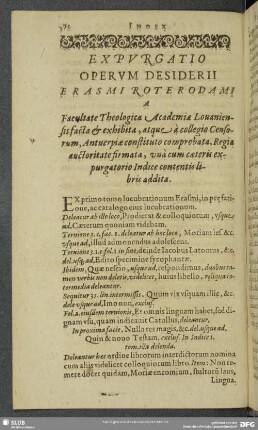 INDEX
EXPVRGATIO
OPERVM DESIDERII
ERASMI ROTERODAMI
A
Facultate Theologica Academiæ Louanien-
sis facta & exhibita, atque à collegio Censo-
rum, Antuerpiæ constituto comprobata, Regia
auctoritate firmata, vnà cum cæteris ex-
purgatorio Indice contentis li-
bris addita.
EX primo tomo lucubrationum Erasmi, in præfati-
one, ac catalogo eius lucubrationum.
Deleatur ab illo loco, Prodierat & colloquiorum, vsque
ad, Cæterum quoniam videbam.
ad, illud admonendus adolescens.
Ibidem, Quæ nescio, vsque ad, respondimus, duobus ta-
men verbis non deletis, videlicet, huius libelli,
termedia deleantur.
Sequitur 31. lin. intermissis. Quum vix vsquam illic, &c.
dele vsque ad, Imo non, exclus.
Fol. 2. eiusdem tomi, Et omnis linguam habet, sed di-
gnam vsu, quam indicauit Catullus, deleantur.
In proxima facie, Nulla res magis, &c. del. vsque ad
Quin & nouo Testam. exclus. In Indice 1.
tomi illa delenda.
Deleantur hoc ordine librorum interdictorum nomina
cum aliis videlicet colloquiorum libro. Item: Non te-
mere docet quidam, Moriæ encomium, stultitiæ laus,
Lingua,